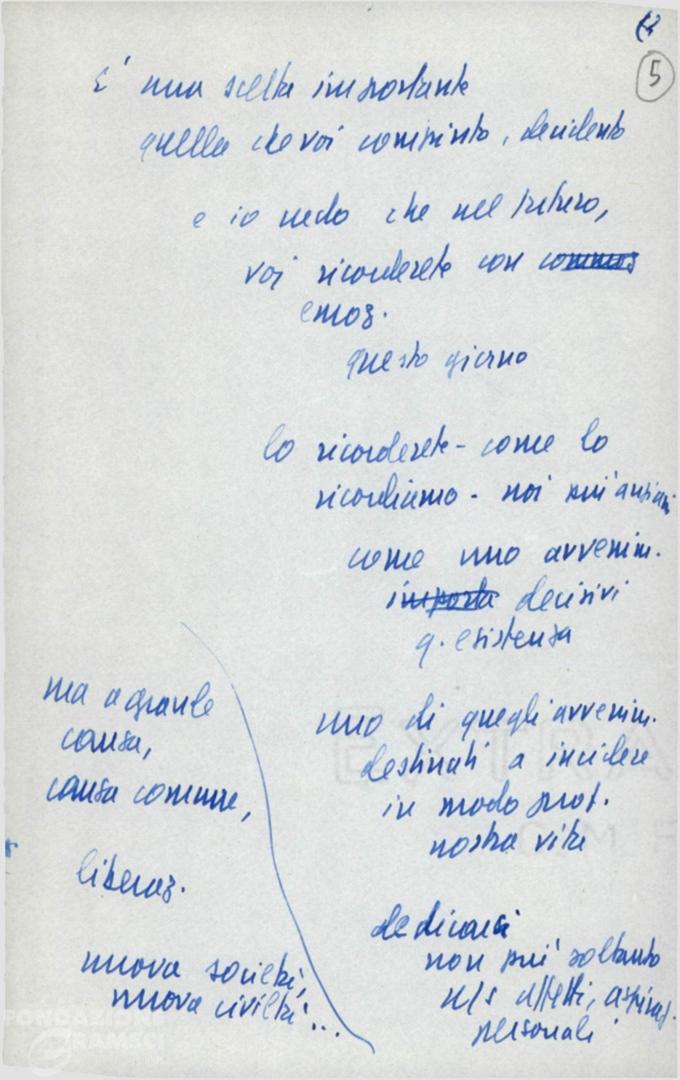 5
E' una scelta importante
quella che voi compiuto, decidento
e io vedo che nel futuro,
voi ricorderete con commoz
emoz.
questo giorno
lo ricorderete - come lo
ricordiamo - noi più anziani
come uno avvenim.
importa decisivi
q. esistenza
uno di quegli avvenim.
destinati a incidere
in modo prof.
nostra vita
dedicarci
non più soltanto
n/s affetti, aspiraz.
personali
ma a grande
causa,
causa comune,
liberaz.
nuova società,
nuova civiltà...
FONDAZIONE
GRAMSCI